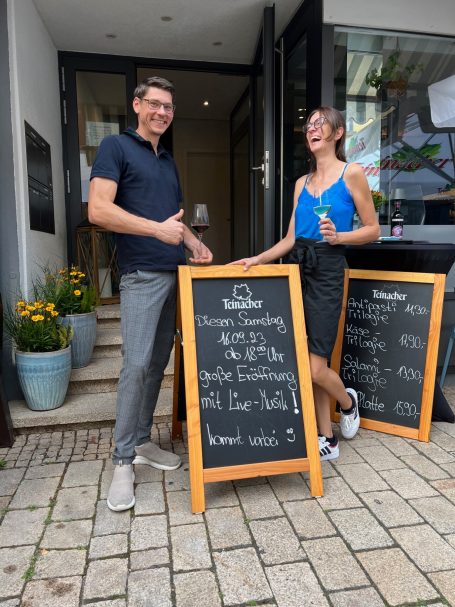 Teinacher
Diesen Samstag
16.09.23
ab 18⁰⁰ Uhr
große Eröffnung
mit Live-Musik!
kommt vorbei
Teinacher
Antipasti 14,90.-
Trilogie
Käse
Trilogie 13,90.-
Salami-
Trilogie
Platte 15,90.-